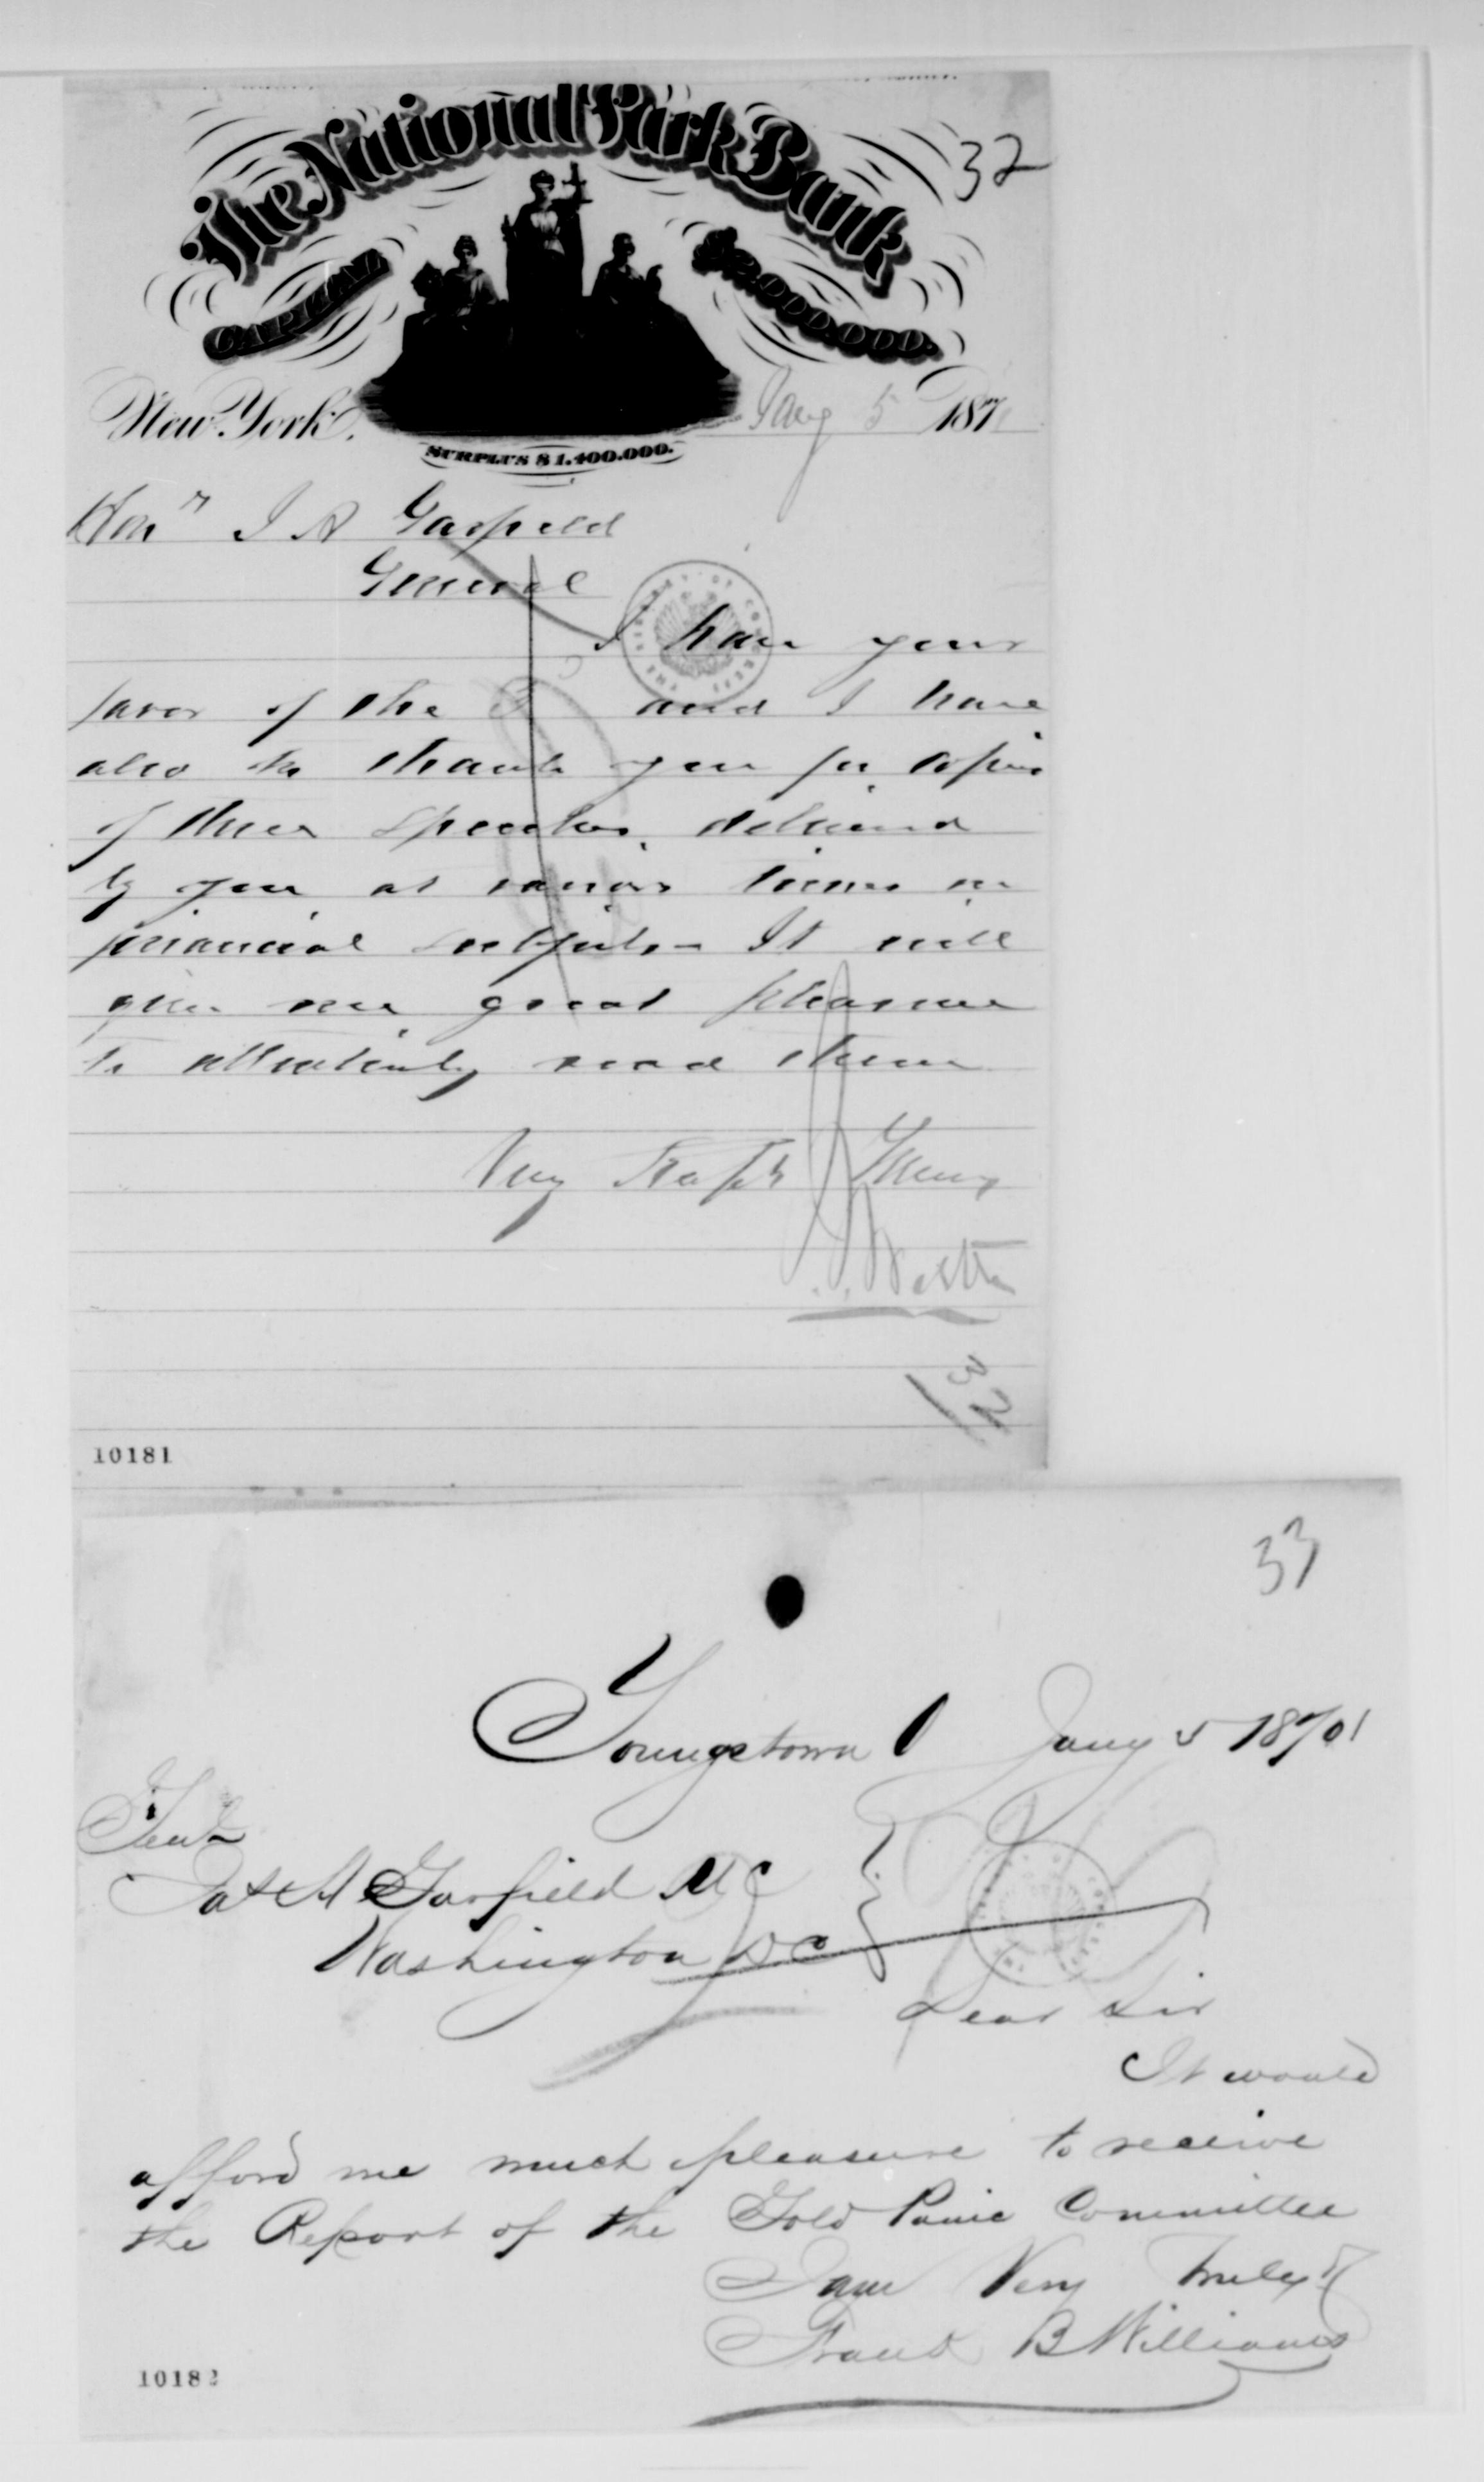 32
The National Park Bank
CAPITAL $2,000,000.
New York, Jany 5 187
SURPLUS $1,400,000.
Hon J A Garfield
General
I have your
favor of the 3 and I have
also to thank you for copies
of three speeches, delivered
by you at various times on
financial subjects - It will
give me great pleasure
to attentively read them
Very Respy Yours
32
10181
33
Youngstown O Jany 5 1871
Genl
Jas A Garfield MC
Washington DC
Dear Sir
It would
afford me much pleasure to receive
the Report of the Gold Panic Committee
I am Very Truly
Frank B Williams
10182